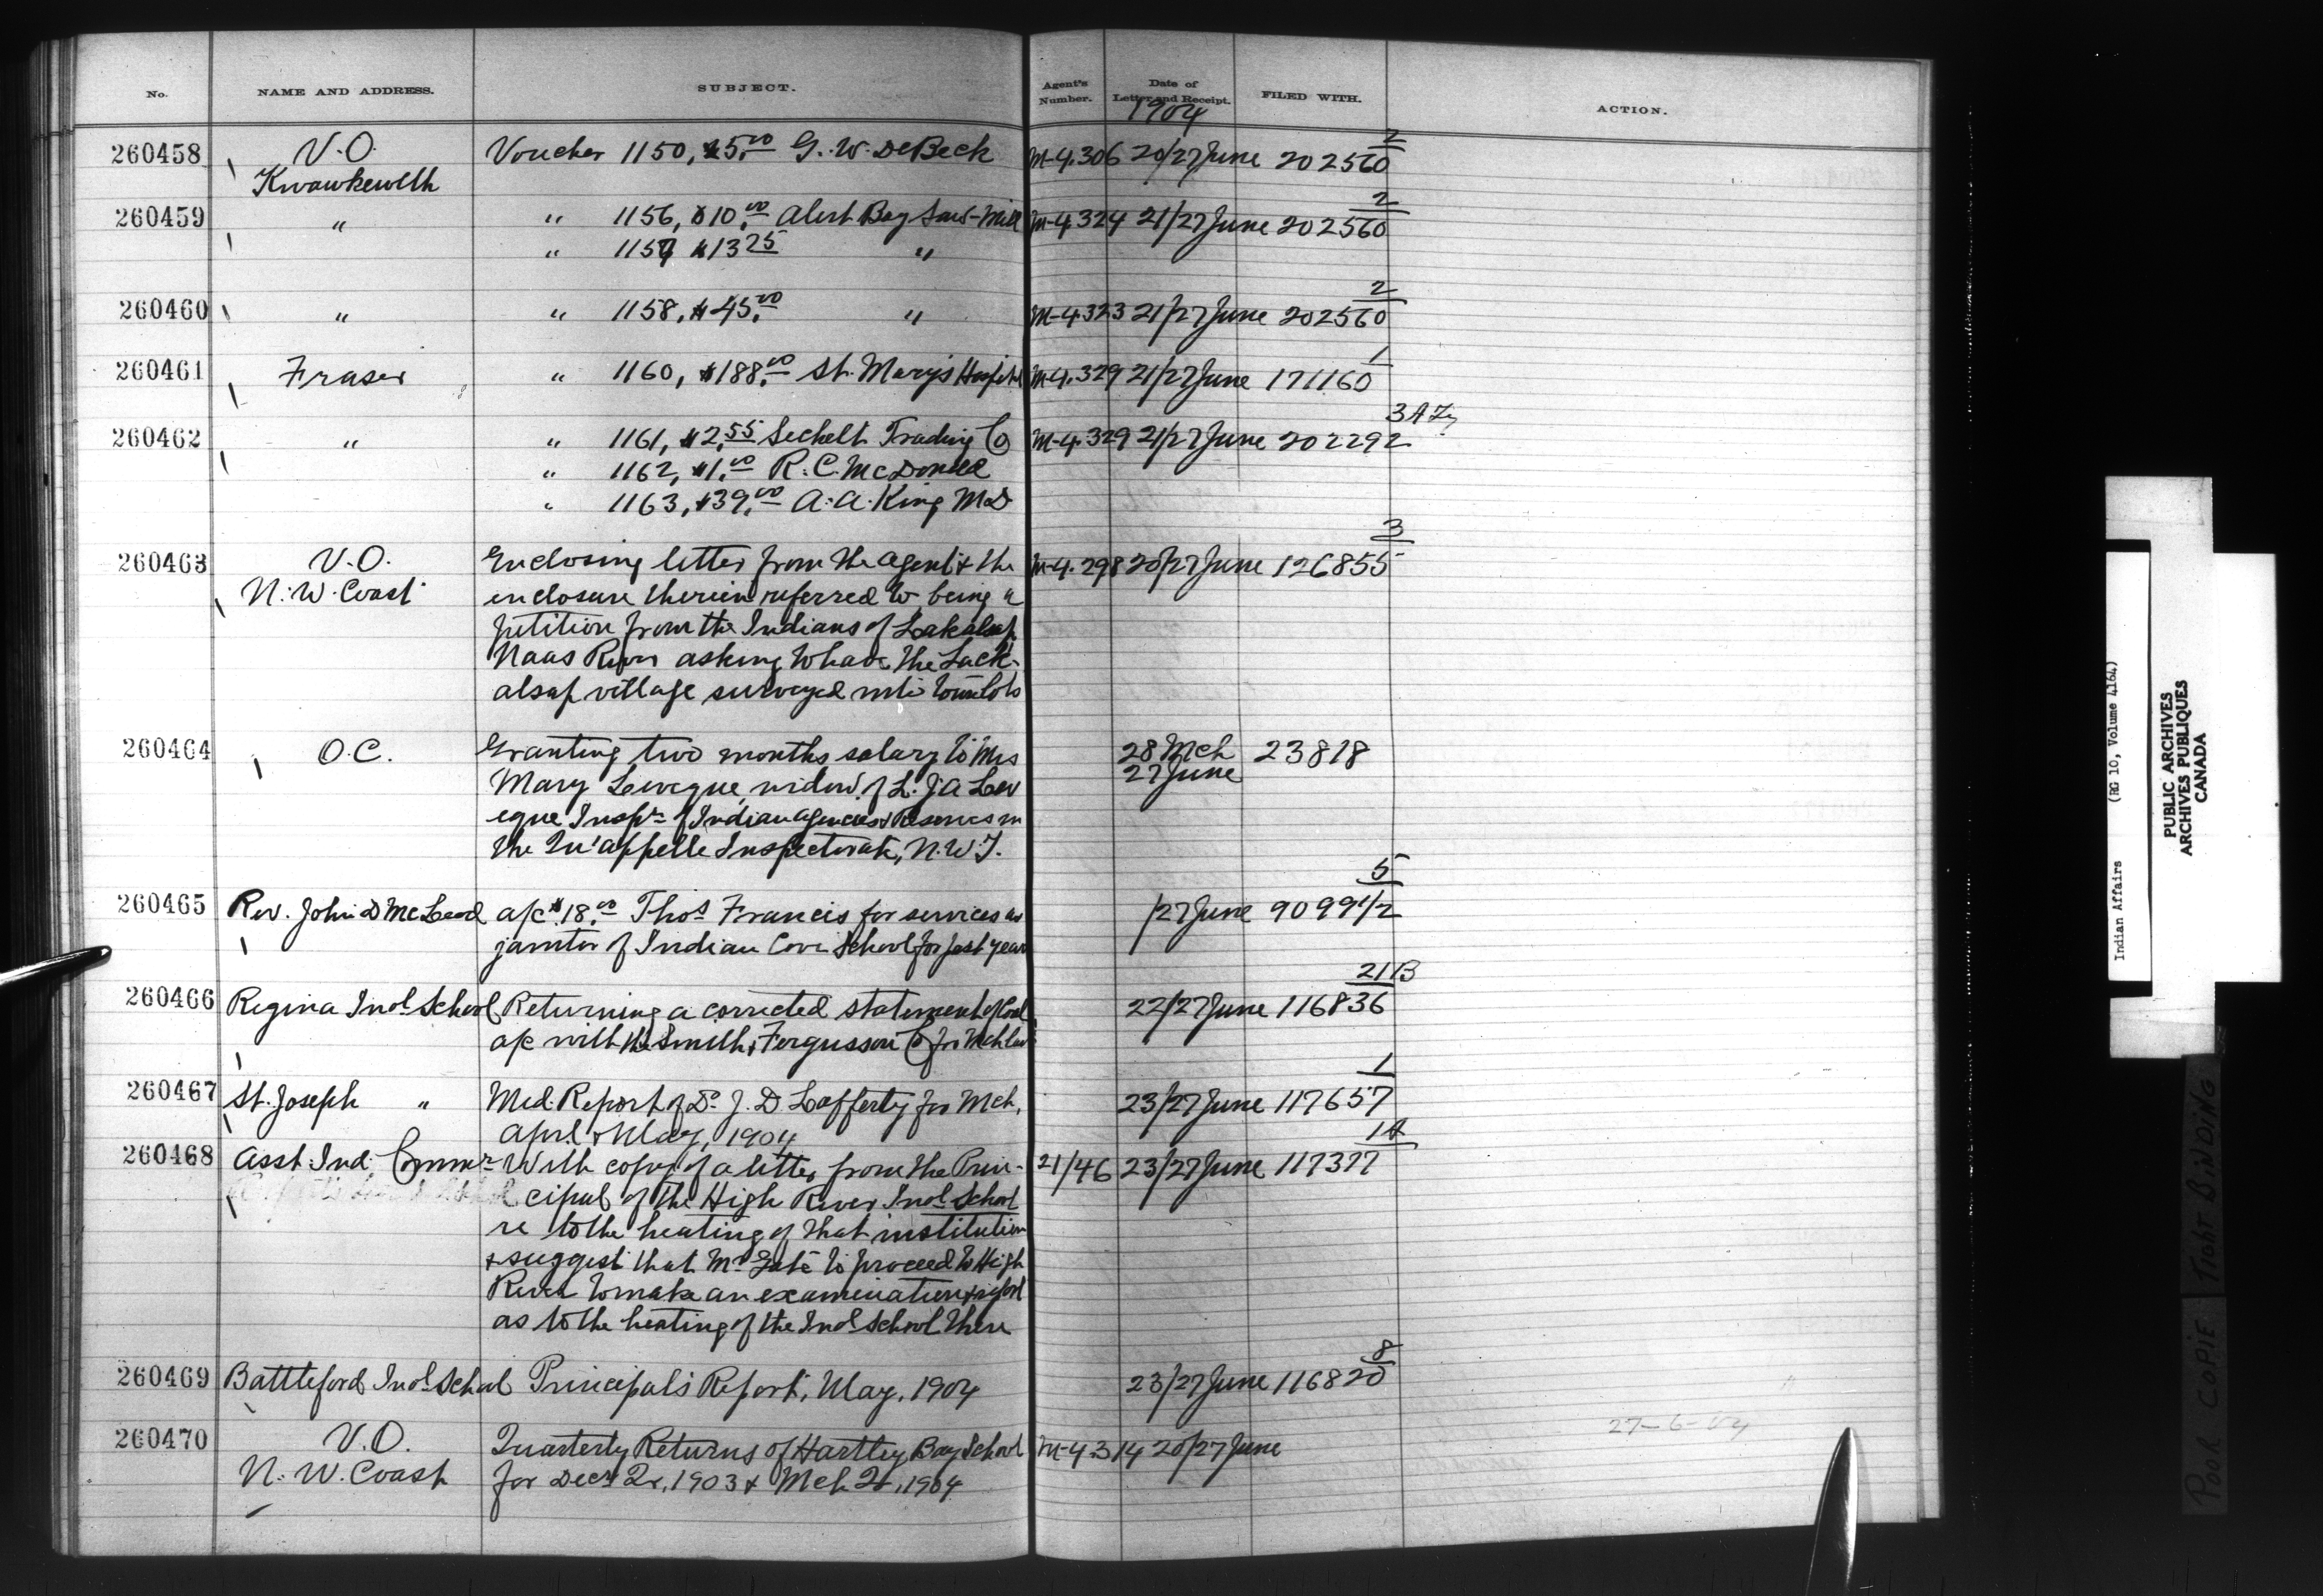 No. NAME AND ADDRESS. SUBJECT. Agent's Number. Date of Letter and Receipt. FILED WITH. ACTION.
1904
2
260458 V.O. Voucher 1150, $5.00 G. W. DeBeck M-4.306 20/27 June 202560
Kwawkewlth
2
260459 " " 1156, $10.00 Alert Bay Saw-Mill M-4.324 21/27 June 202560
" 1157 $13 25 "
2
260460 " " 1158, $45.00 " M-4323 21/27 June 202560
1
260461 Fraser " 1160, $188.00 St. Mary's Hospital M-4.329 21/27 June 171160
3
260462 " " 1161, $2.55 Sechelt Trading Co M-4.329 21/27 June 202292
" 1162, $1.00 R. C. McDonald
" 1163, $39.00 A. A. King MD
3
260463 V.O. Enclosing letter from the agent & the M-4.298 20/27 June 126855
N. W. Coast enclosure therein referred to, being a
petition from the Indians of Lakalsap
Naas River asking to have the Lack-
alsap village surveyed into town lots
260464 O.C. Granting two months salary to Mrs 28 Mch 23818
27 June
Mary Leveque, widow of L. J A Lev
eque Inspr of Indian agencies & Reserves in
the Qu'appelle Inspectorate, N.W.T.
5
260465 Rev. John D McLeod a/c $18.00 Thos Francis for services as /27 June 9099 1/2
janitor of Indian Cove School for past year
21B
260466 Regina Indl School Returning a corrected statement of Coal 22/27 June 116836
a/c with the Smith & Fergusson Co for Mch last
1
260467 St. Joseph " Med. Report of Dr J. D Lafferty for Mch, 23/27 June 117657
April & May, 1904
1A
260468 Asst. Ind. Commr With copy of a letter from the Prin- 21/46 23/27 June 117377
cipal of the High River Indl School
re to the heating of that institution
& suggest that Mr to proceed to High
River to make an examination & report
as to the heating of the Indl School there
8
260469 Battleford Indl School Principal's Report, May, 1904 23/27 June 116820
27-6-04
260470 V.O. Quarterly Returns of Hartley Bay School M-4314 20/27 June
N. W. Coast for Decr Qr, 1903 & Mch Qr, 1904
Indian Affairs (RG 10, Volume 4164)
PUBLIC ARCHIVES
ARCHIVES PUBLIQUES
CANADA
POOR COPIE TIGHT BINDING